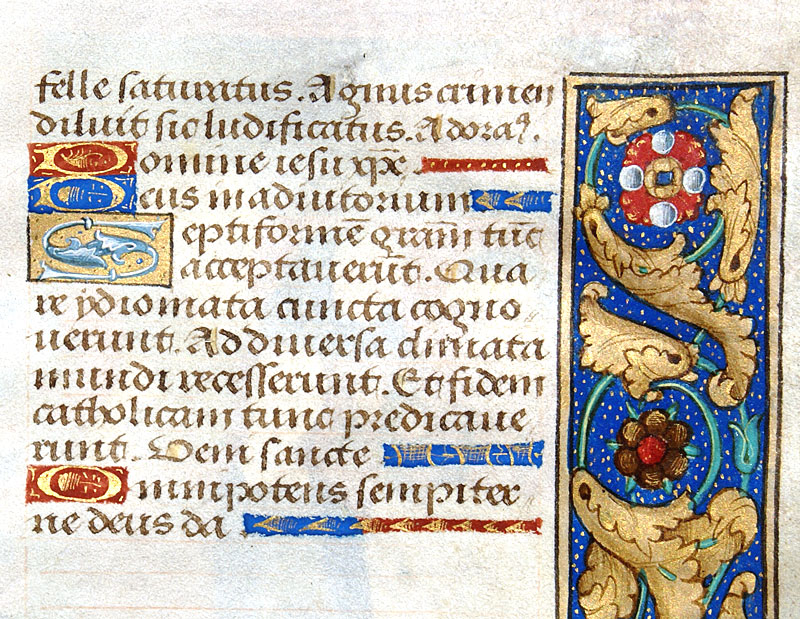 felle saturatus. Agnus crimen
diluit sic ludificatus. Adoraꝰ.
Domine iesu xp̄e
Deus in adiutorium
Septiformē grām tūc
acceptauerūt. Qua
re ydiomata cuncta cogno
uerunt. Ad diuersa climata
mundi recesserunt. Et fidem
catholicam tunc predicaue
runt. Veni sancte
Omnipotens sempiter
ne deus da